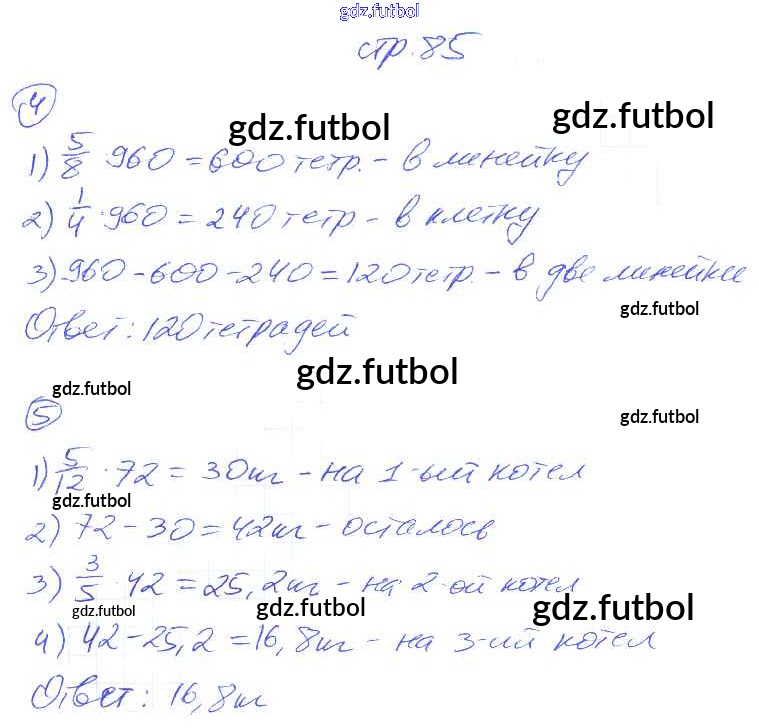 gdz.futbol
стр. 85
4
gdz.futbol gdz.futbol
1) 5/8 · 960 = 600 тетр. - в линейку
2) 1/4 · 960 = 240 тетр - в клетку
3) 960 - 600 - 240 = 120 тетр. - в две линейки
gdz.futbol
Ответ: 120 тетрадей
gdz.futbol
gdz.futbol
5
gdz.futbol
1) 5/12 · 72 = 30 кг - на 1-ый котел
gdz.futbol
2) 72 - 30 = 42 кг - осталось
3) 3/5 · 42 = 25,2 кг - на 2-ой котел
gdz.futbol gdz.futbol gdz.futbol
4) 42 - 25,2 = 16,8 кг - на 3-ий котел
Ответ: 16,8 кг